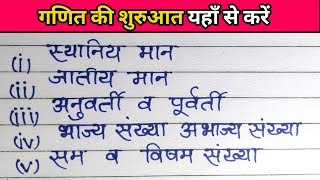 गणित की शुरुआत यहाँ से करें
(i) स्थानिय मान
(ii) जातीय मान
(iii) अनुवर्ती व पूर्वर्ती
(iv) भाज्य संख्या अभाज्य संख्या
(v) सम व विषम संख्या